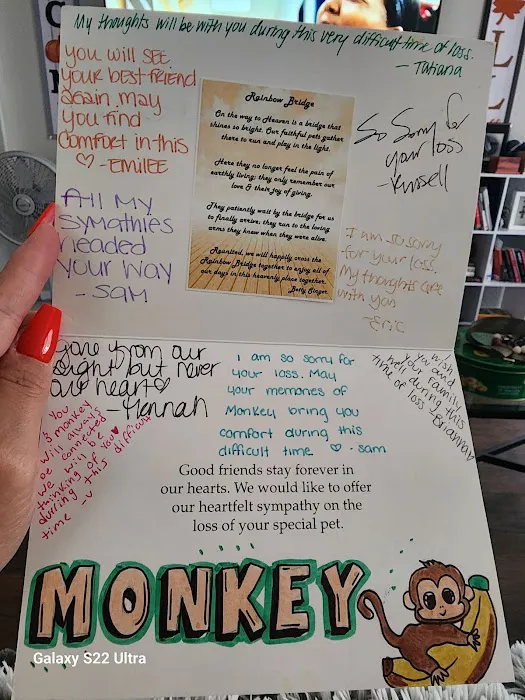 My thoughts will be with you during this very difficult time of loss.
- Tatiana
you will see
your best friend
again may
you find
comfort in this
♡ -EMILEE
Rainbow Bridge
On the way to Heaven is a bridge that
shines so bright. Our faithful pets gather
there to run and play in the light.
Here they no longer feel the pain of
earthly living; they only remember our
love & their joy of giving.
They patiently wait by the bridge for us
to finally arrive; they run to the loving
arms they knew when they were alive.
Reunited, we will happily cross the
Rainbow Bridge together to enjoy all of
our days in this heavenly place together.
So Sorry for
your loss
-Russell
All My
Symathies
headed
your way
- Sam
I am so sorry
for your loss.
My thoughts are
with you
- Eric
gone from our
sight but never
our heart♡
-Hannah
I am so sorry for
your loss. May
your memories of
Monkey bring you
comfort during this
difficult time ♡ - sam
wish
you and
your family
well during this
time of loss Brianna
You
& monkey
will always
be connected
we will be
thinking of you♥
durring this difficult
time -v
Good friends stay forever in
our hearts. We would like to offer
our heartfelt sympathy on the
loss of your special pet.
MONKEY
Galaxy S22 Ultra